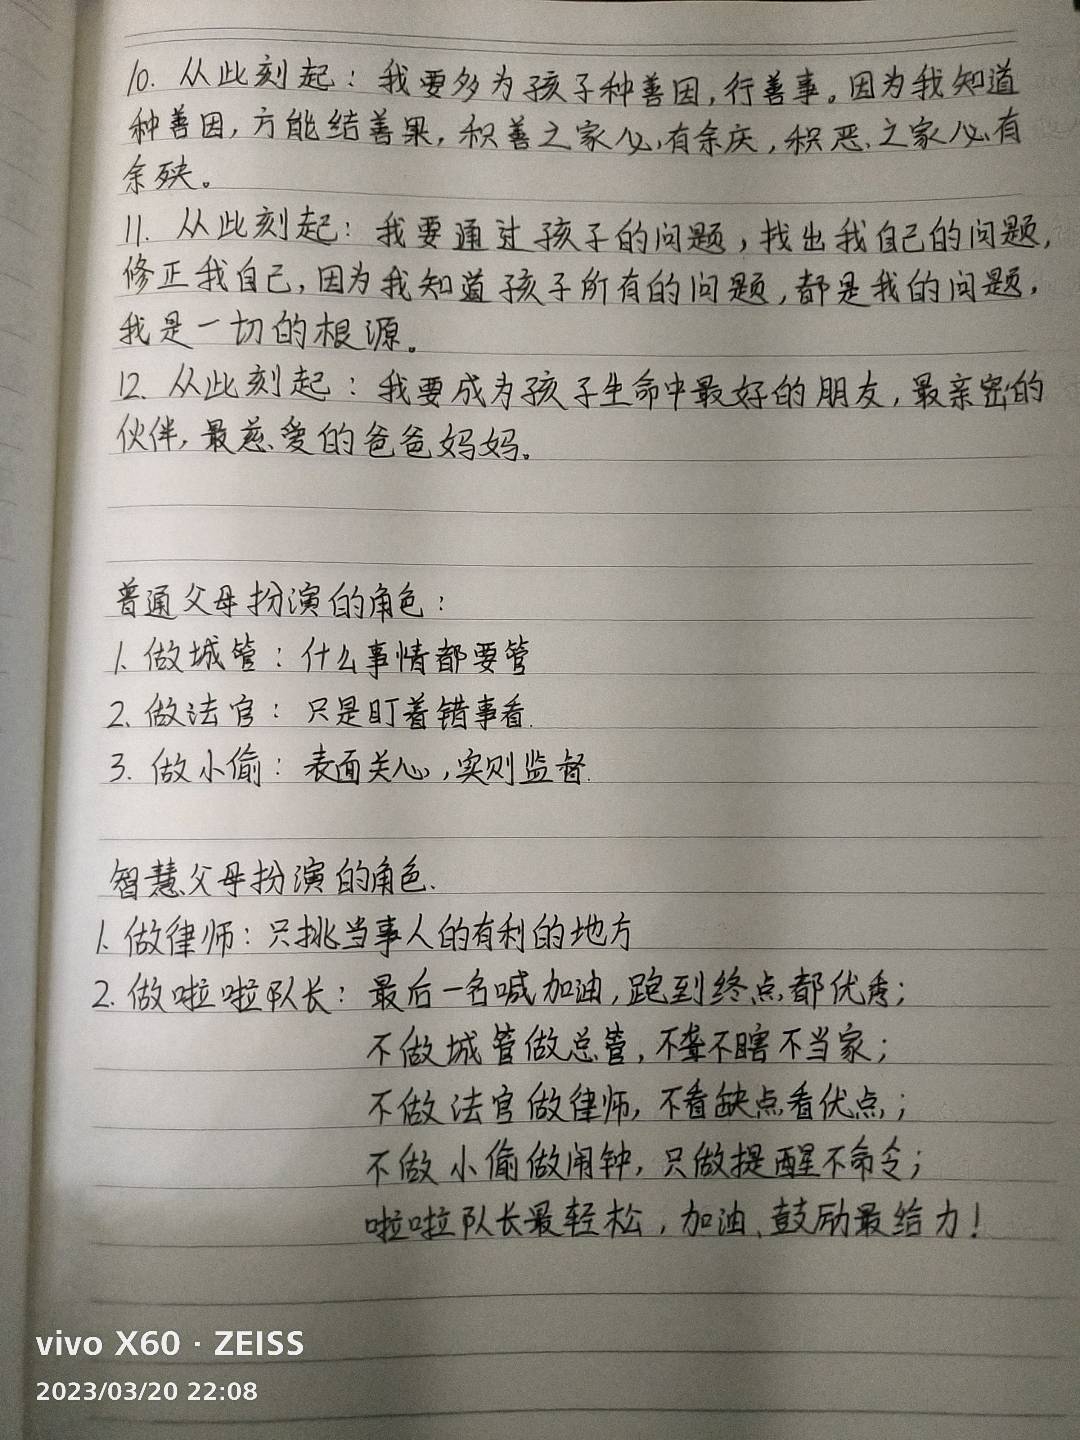 10. 从此刻起：我要多为孩子种善因，行善事。因为我知道
种善因，方能结善果，积善之家必有余庆，积恶之家必有
余殃。
11. 从此刻起：我要通过孩子的问题，找出我自己的问题，
修正我自己，因为我知道孩子所有的问题，都是我的问题，
我是一切的根源。
12. 从此刻起：我要成为孩子生命中最好的朋友，最亲密的
伙伴，最慈爱的爸爸妈妈。
普通父母扮演的角色：
1. 做城管：什么事情都要管
2. 做法官：只是盯着错事看.
3. 做小偷：表面关心，实则监督.
智慧父母扮演的角色.
1. 做律师：只挑当事人的有利的地方
2. 做啦啦队长：最后一名喊加油，跑到终点都优秀；
不做城管做总管，不聋不瞎不当家；
不做法官做律师，不看缺点看优点；
不做小偷做闹钟，只做提醒不命令；
啦啦队长最轻松，加油、鼓励最给力！
vivo X60 · ZEISS
2023/03/20 22:08